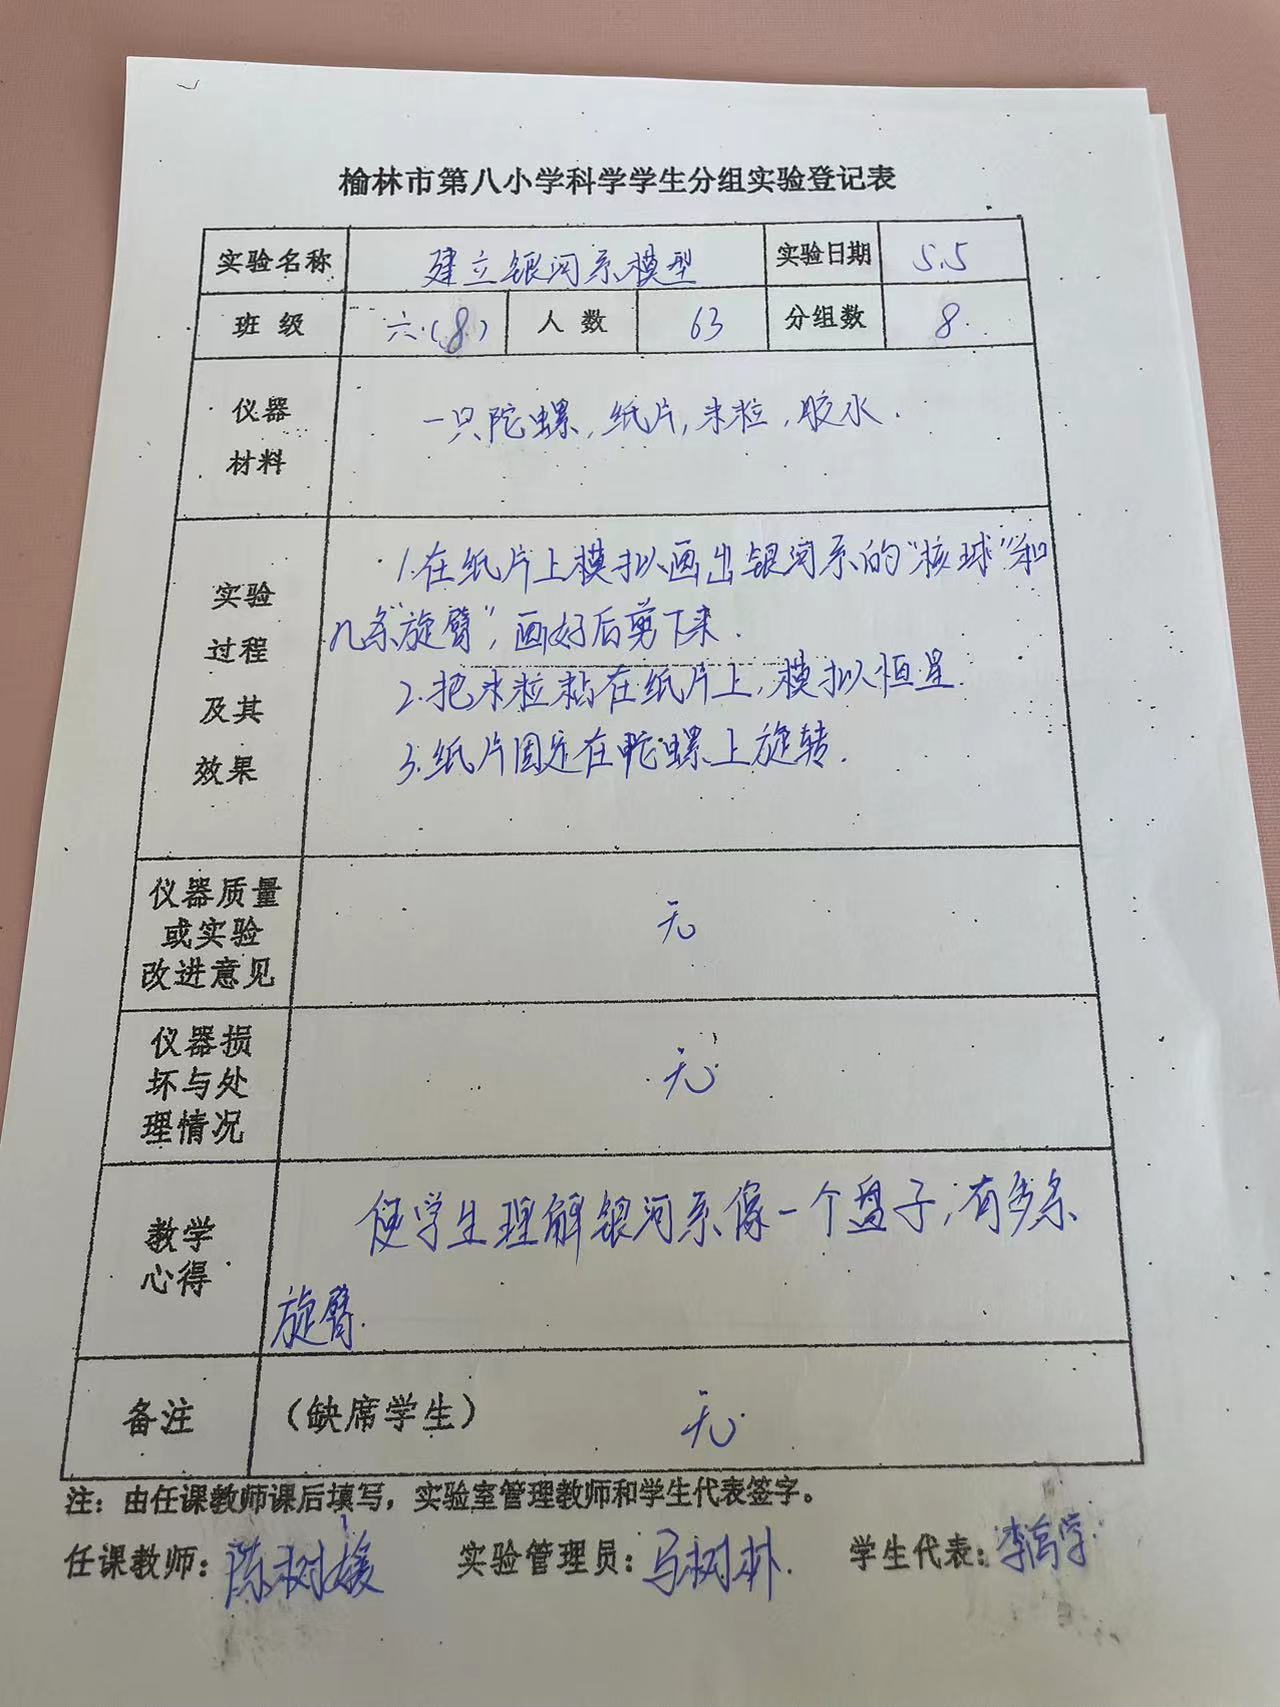 榆林市第八小学科学学生分组实验登记表
实验名称 建立银河系模型 实验日期 5.5
班 级 六.(8) 人 数 63 分组数 8.
仪器
材料
一只陀螺,纸片,米粒,胶水.
实验
过程
及其
效果
1.在纸片上模拟画出银河系的"核球"和
几条"旋臂",画好后剪下来.
2.把米粒粘在纸片上,模拟恒星.
3.纸片固定在陀螺上旋转.
仪器质量
或实验
改进意见
无
仪器损
坏与处
理情况
无
教学
心得
使学生理解银河系像一个盘子,有多条
旋臂.
备注 (缺席学生) 无
注:由任课教师课后填写,实验室管理教师和学生代表签字。
任课教师:陈树媛 实验管理员:马树林. 学生代表: